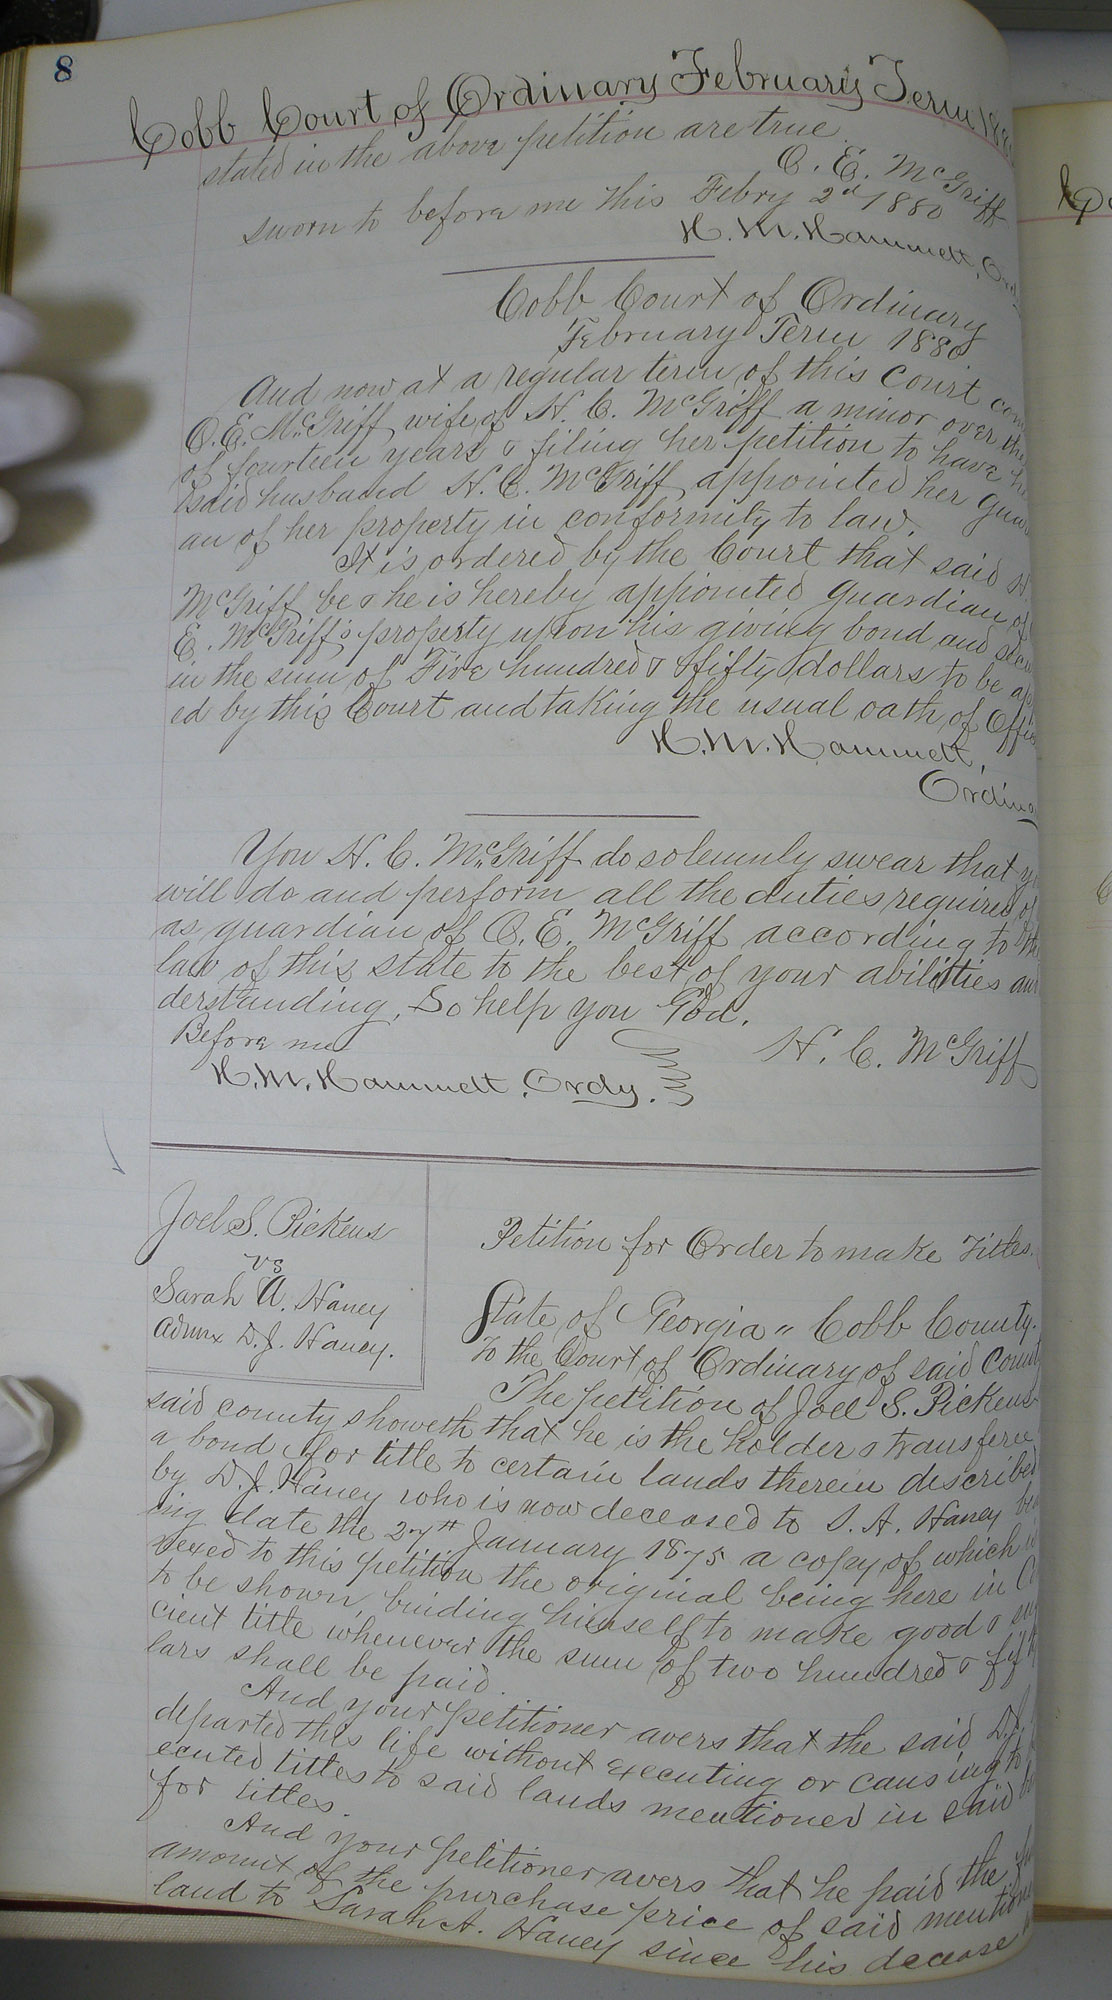 8
Cobb Court of Ordinary February Term 18
stated in the above petition are true
O. E. McGriff
sworn to before me this Febry 2d 1880
H. M. Hammett, Ord
Cobb Court of Ordinary
February Term 1880
And now at a regular term of this Court com
O. E. McGriff wife of H. C. McGriff a minor over the
of fourteen years & filing her petition to have h
said husband H. C. McGriff appointed her guar
an of her property in conformity to law.
It is ordered by the Court that said H.
McGriff be & he is hereby appointed guardian of
E. McGriff's property upon his giving bond and secu
in the sum of Five hundred & fifty dollars to be ap
ed by this Court and taking the usual oath of Offi
H. M. Hammett,
Ordina
You H. C. McGriff do solemnly swear that y
will do and perform all the duties required of
as guardian of O. E. McGriff according to the
law of this state to the best of your abilities an
derstanding. So help you God.
Before me
H. C. McGriff
H. M. Hammett, Ordy.
Joel S. Pickens
vs
Sarah A. Haney
Admx D. J. Haney.
Petition for Order to make Titles.
State of Georgia " Cobb County.
To the Court of Ordinary of said County
The petition of Joel S. Pickens
said county showeth that he is the holder & transferee
a bond for title to certain lands therein described
by D. J. Haney who is now deceased to S. A. Haney bea
ing date the 27th January 1875 a copy of which is
nexed to this petition the original being here in Co
to be shown, binding himself to make good & su
cient title whenever the sum of two hundred & fifty
lars shall be paid.
And your petitioner avers that the said D. J.
departed this life without executing or causing to
ecuted titles to said lands mentioned in said
for titles.
And your petitioner avers that he paid the
amount of the purchase price of said mention
land to Sarah A. Haney since his decease